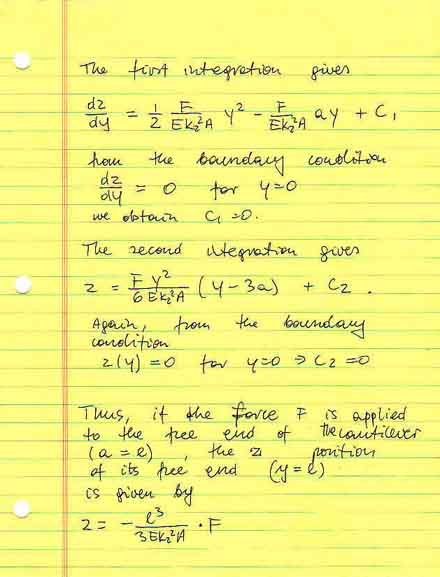 The first integration gives
dz/dy = 1/2 F/(Ek₂²A) y² − F/(Ek₂²A) ay + C₁
from the boundary condition
dz/dy = 0 for y=0
we obtain C₁=0.
The second integration gives
z = F y²/(6 Ek₂²A) (y − 3a) + C₂ .
Again, from the boundary
condition
z(y) = 0 for y=0 ⇒ C₂ = 0
Thus, if the force F is applied
to the free end of the cantilever
(a = l) , the z position
of its free end (y = l)
is given by
z = − l³/(3Ek₂²A) · F